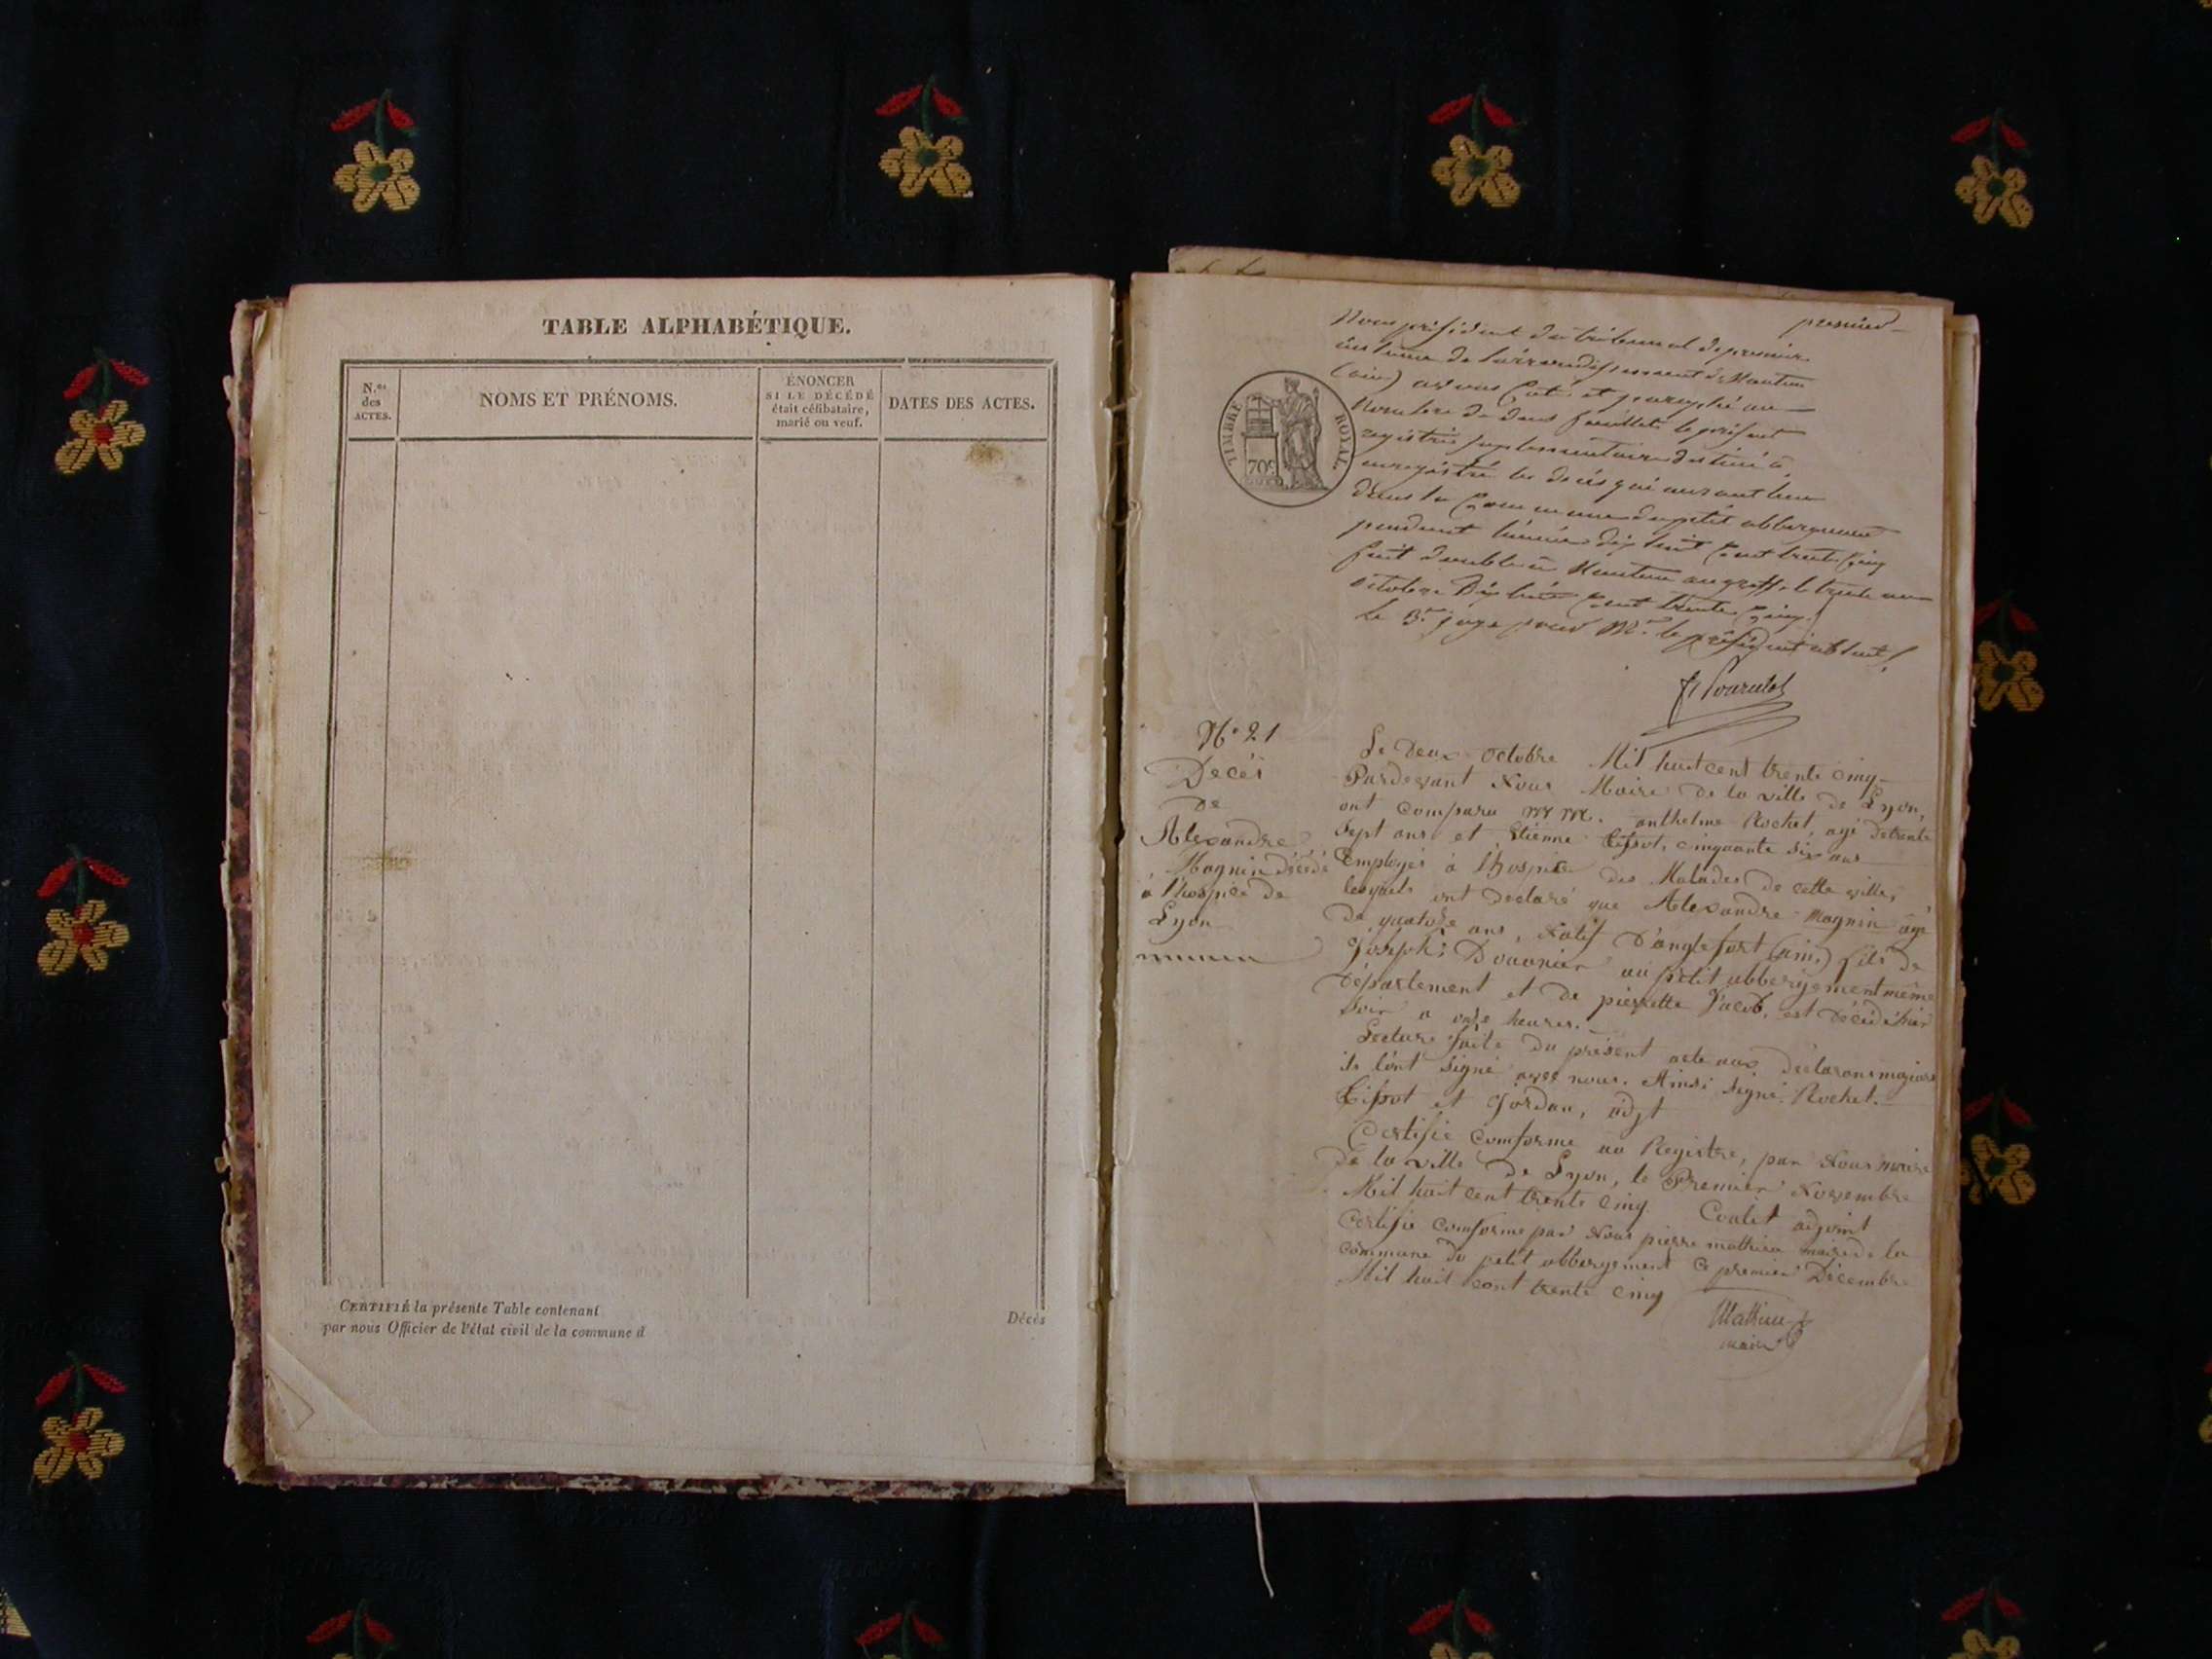 TABLE ALPHABÉTIQUE.
N.os
des
ACTES.
NOMS ET PRÉNOMS.
ÉNONCER
SI LE DÉCÉDÉ
était célibataire,
marié ou veuf.
DATES DES ACTES.
CERTIFIÉ la présente Table contenant
par nous Officier de l'état civil de la commune d
Décès
premier
Nous président du tribunal de premiere
instance de l'arrondissement de Nantua
(ain) avons Coté et paraphé au
nombre de deux feuillets le présent
registre suplementaire destiné à
enregistré les décès qui auront lieu
dans la Commune du petit abbergement
pendant l'année dix huit Cent trente Cinq
fait double à Nantua au greffe le trente un
octobre Dix huit Cent trente Cinq.
Le 3.e juge pour Mr. le président absent,
TIMBRE ROYAL.
70c
N° 21
Décès
de
Alexandre
Magnin décédé
à l'hospice de
Lyon
Le Deux Octobre Mil huit cent trente cinq
Pardevant Nous Maire de la ville de Lyon,
ont comparu MM. anthelme Rochet, agé de trente
sept ans et Etienne Tissot, cinquante six ans
Employés à l'hospice des Malades de cette ville,
lesquels ont déclaré que Alexandre Magnin agé
de quatorze ans, Natif D'anglefort (ain,) fils de
Joseph, Douanier au petit abbergement même
département et de pierrette Jacob, est décédé hier
soir a onze heures.
Lecture faite du présent acte aux déclarans majeurs
ils l'ont signé avec nous. Ainsi signé Rochet.
Tissot et Jordan, adjt
Certifié Comforme au Registre, par Nous maire
de la ville de Lyon, le Premier Novembre
Mil huit cent trente cinq. Coulet adjoint
Certifié comforme par Nous pierre mathieu maire de la
commune du petit abbergement ce premier Décembre
Mil huit cent trente cinq
Mathieu
maire